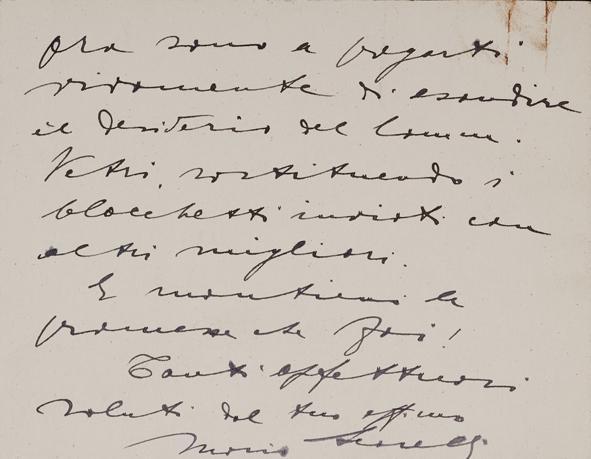 Ora sono a pregarti
vivamente di esaudire
il desiderio del Comm.
Vetri, sostituendo i
blocchetti inviati con
altri migliori.
E mantieni le
promesse che fai!
Tanti affettuosi
saluti dal tuo aff.mo
Mario